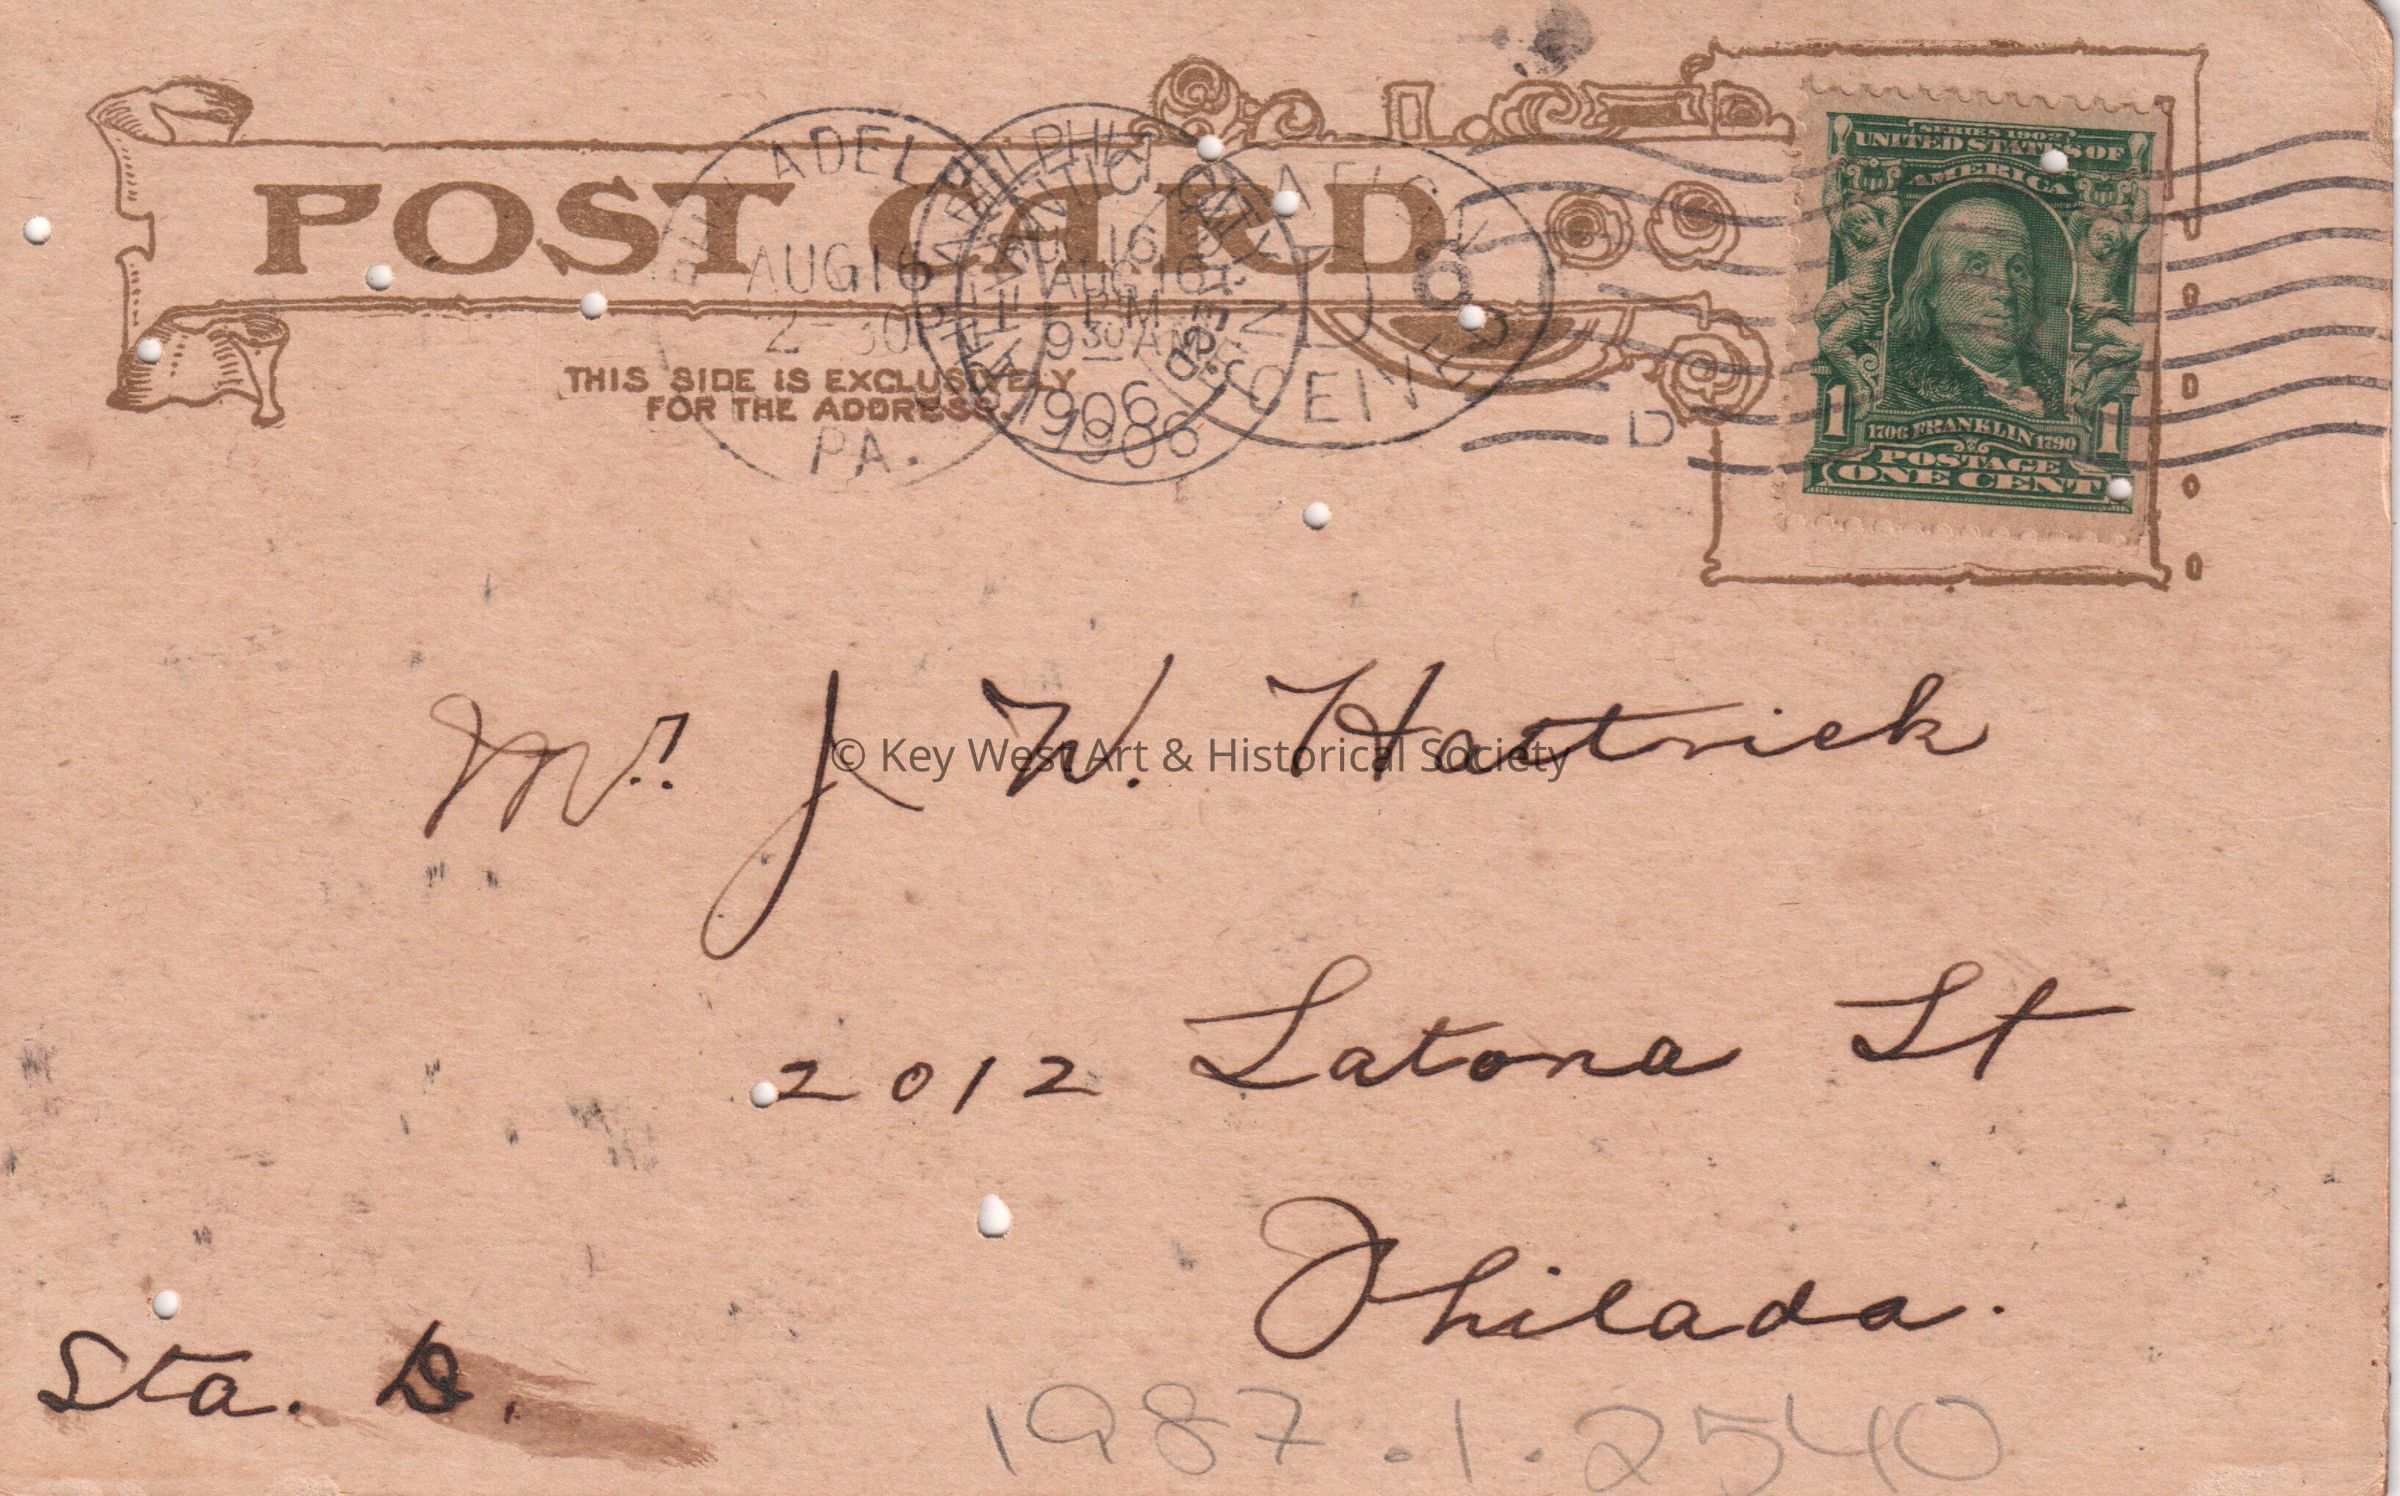 POST CARD
THIS SIDE IS EXCLUSIVELY
FOR THE ADDRESS.
PHILADELPHIA
AUG 16
2-30P
PA.
ATLANTIC CITY
AUG 16
9 30 AM
1906
1906
RECEIVED
D
SERIES 1902
UNITED STATES OF
AMERICA
1 1
1706 FRANKLIN 1790
POSTAGE
ONE CENT
Mr. J. W. Hattrick
© Key West Art & Historical Society
2012 Latona St
Philada.
Sta. D.
1987.1.2540